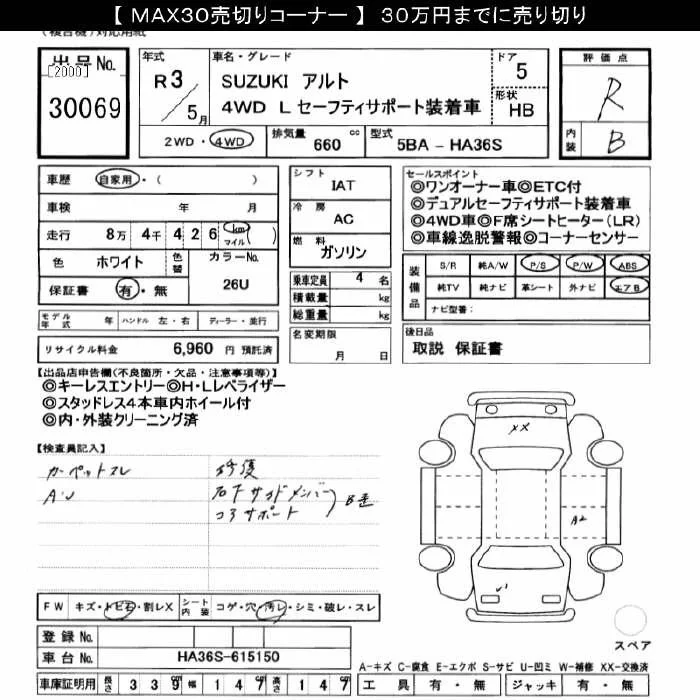 【 MAX30売切りコーナー 】 30万円までに売り切り
(複合機)対応用紙
出品No.
[2000]
30069
年式
R 3 / 5 月
車名・グレード
SUZUKI アルト
4WD L セーフティサポート装着車
ドア
5
形状
HB
評価点
R
内装
B
2WD・4WD
排気量
660 cc
型式
5BA - HA36S
車歴 自家用・( )
車検 年 月
走行 8万 4千 4 2 6 km マイル ( )
色 ホワイト
色替
カラーNo.
26U
保証書 有・無
シフト
IAT
冷房
AC
燃料
ガソリン
乗車定員 4 名
積載量 kg
総重量 kg
セールスポイント
◎ワンオーナー車◎ETC付
◎デュアルセーフティサポート装着車
◎4WD車◎F席シートヒーター(LR)
◎車線逸脱警報◎コーナーセンサー
装備品
S/R 純A/W P/S P/W ABS
純TV 純ナビ 革シート 外ナビ エアB
ナビ型番:
モデル年式 年 ハンドル 左・右 ディーラー・並行
リサイクル料金 6,960 円 預託済
名変期限
月 日
後日品
取説 保証書
【出品店申告欄(不良箇所・欠品・注意事項等)】
◎キーレスエントリー◎H・Lレベライザー
◎スタッドレス4本車内ホイール付
◎内・外装クリーニング済
【検査員記入】
カーペットスレ
修復
右Fサイドメンバー
コアサポート
XX
A2
FW キズ・トビ石・割レX
シート内装 コゲ・穴・汚レ・シミ・破レ・スレ
登録No.
車台No. HA36S-615150
スペア
A-キズ C-腐食 E-エクボ S-サビ U-凹ミ W-補修 XX-交換済
車庫証明用 長さ 3 3 9 cm 幅 1 4 7 cm 高さ 1 4 7 cm
工具 有・無 ジャッキ 有・無